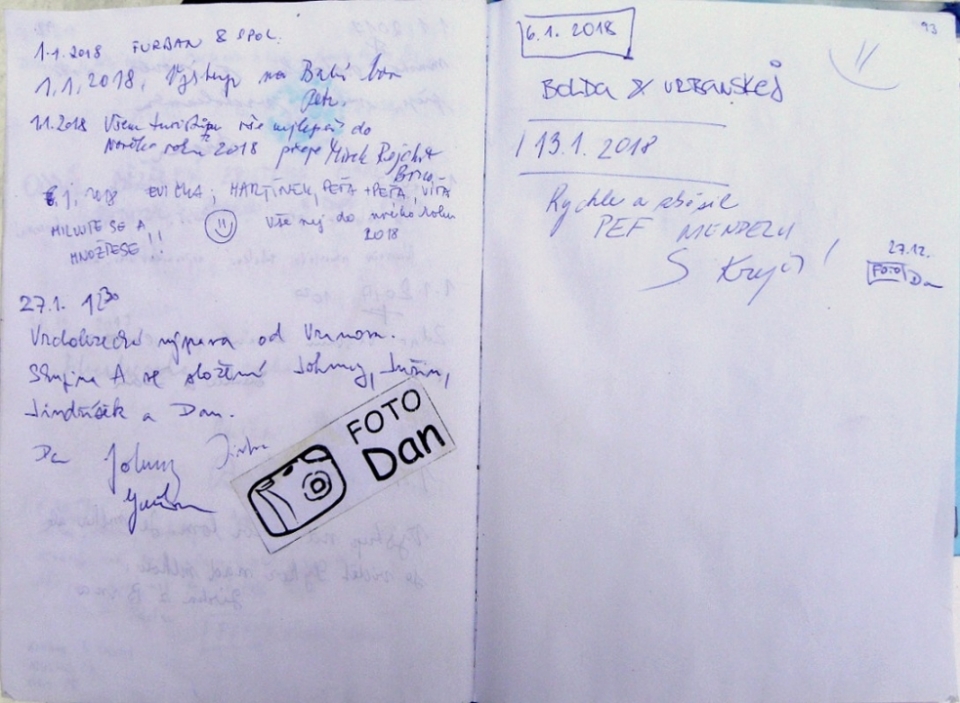 1.1.2018 FURBAN & SPOL.
1.1.2018, Výstup na Babí lom
Petr.
1.1.2018 Všem turistům vše nejlepší do
Nového roku 2018 přeje Mirek
Brno
6.1. 2018 EVIČKA, MARTÍNEK, PEŤA + PEŤA, VÍŤA
MILUJTE SE A
MNOŽTE SE!!
Vše nej do nového roku
2018
27.1. 12:30
výprava od Vranova.
Skupina A ve složení Johny,
Jindříšek a Dan.
Da Johny Jindra
FOTO
Dan
93
6.1. 2018
BOLDA & URBANSKEJ
13.1. 2018
Rychle a zběsile
PEF MENDELU
27.12.
FOTO Dan